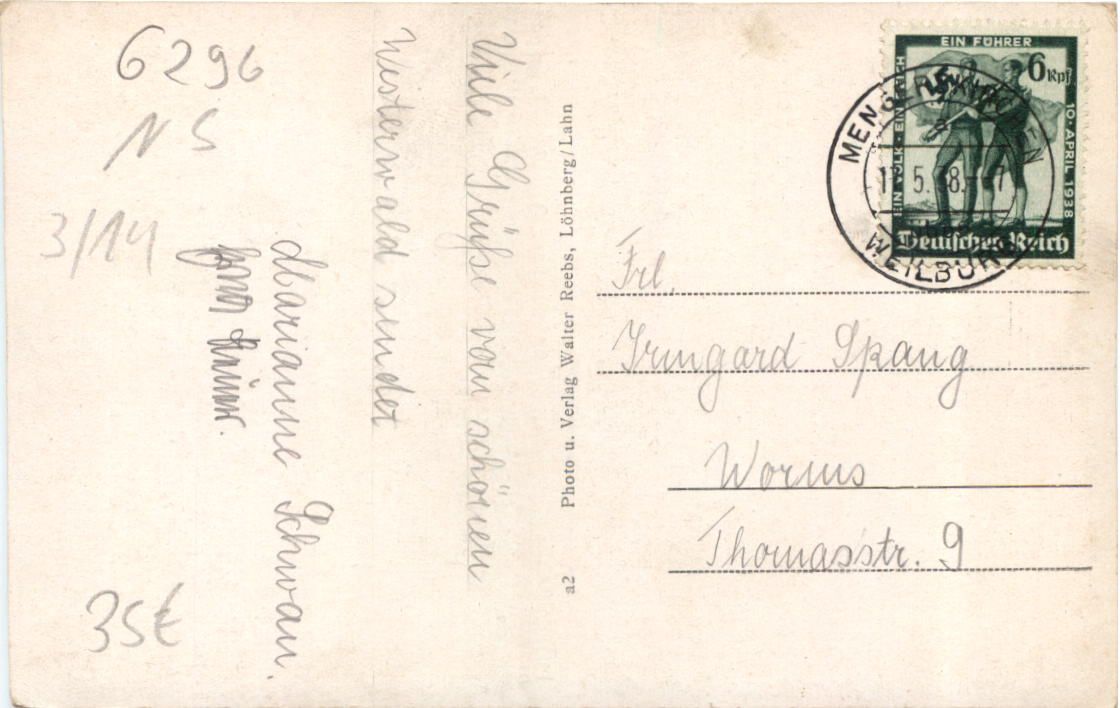 6296
NS
3/14
35€
Viele Grüße vom schönen
Westerwald sendet
Marianne Schwan.
a2 Photo u. Verlag Walter Reebs, Löhnberg/Lahn
EIN VOLK · EIN REICH
EIN FÜHRER
10·APRIL 1938
6 Rpf
Deutsches Reich
MENGERSKIRCHEN
WEILBURG
Frl.
Irmgard Spang
Worms
Thomasstr. 9